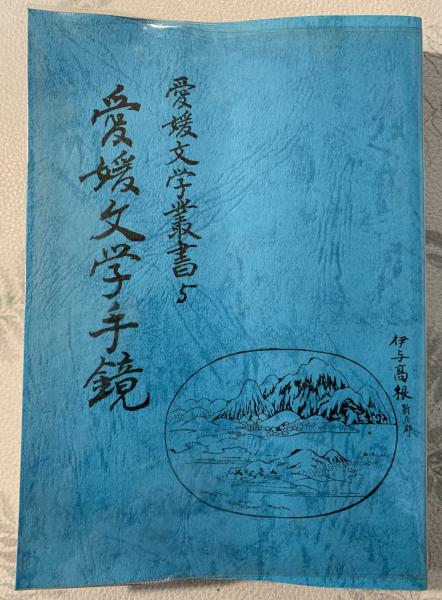 愛媛文学叢書5
愛媛文学手鏡
伊与高根